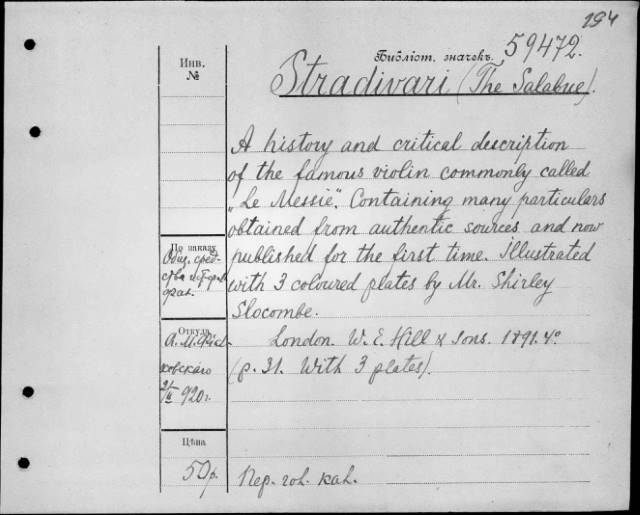 194
Библіот. значекъ. 59472.
Stradivari (The Salabue).
Инв.
№
A history and critical description
of the famous violin commonly called
„Le Messie". Containing many particulars
obtained from authentic sources and now
published for the first time. Illustrated
with 3 coloured plates by Mr. Shirley
Slocombe.
London. W. E. Hill & Sons. 1891. 4°
(p. 31. With 3 plates).
По заказу
сред-
ства
Откуда
А. М.
ковскаго
920г.
Цѣна
50р.
Пер. кал.